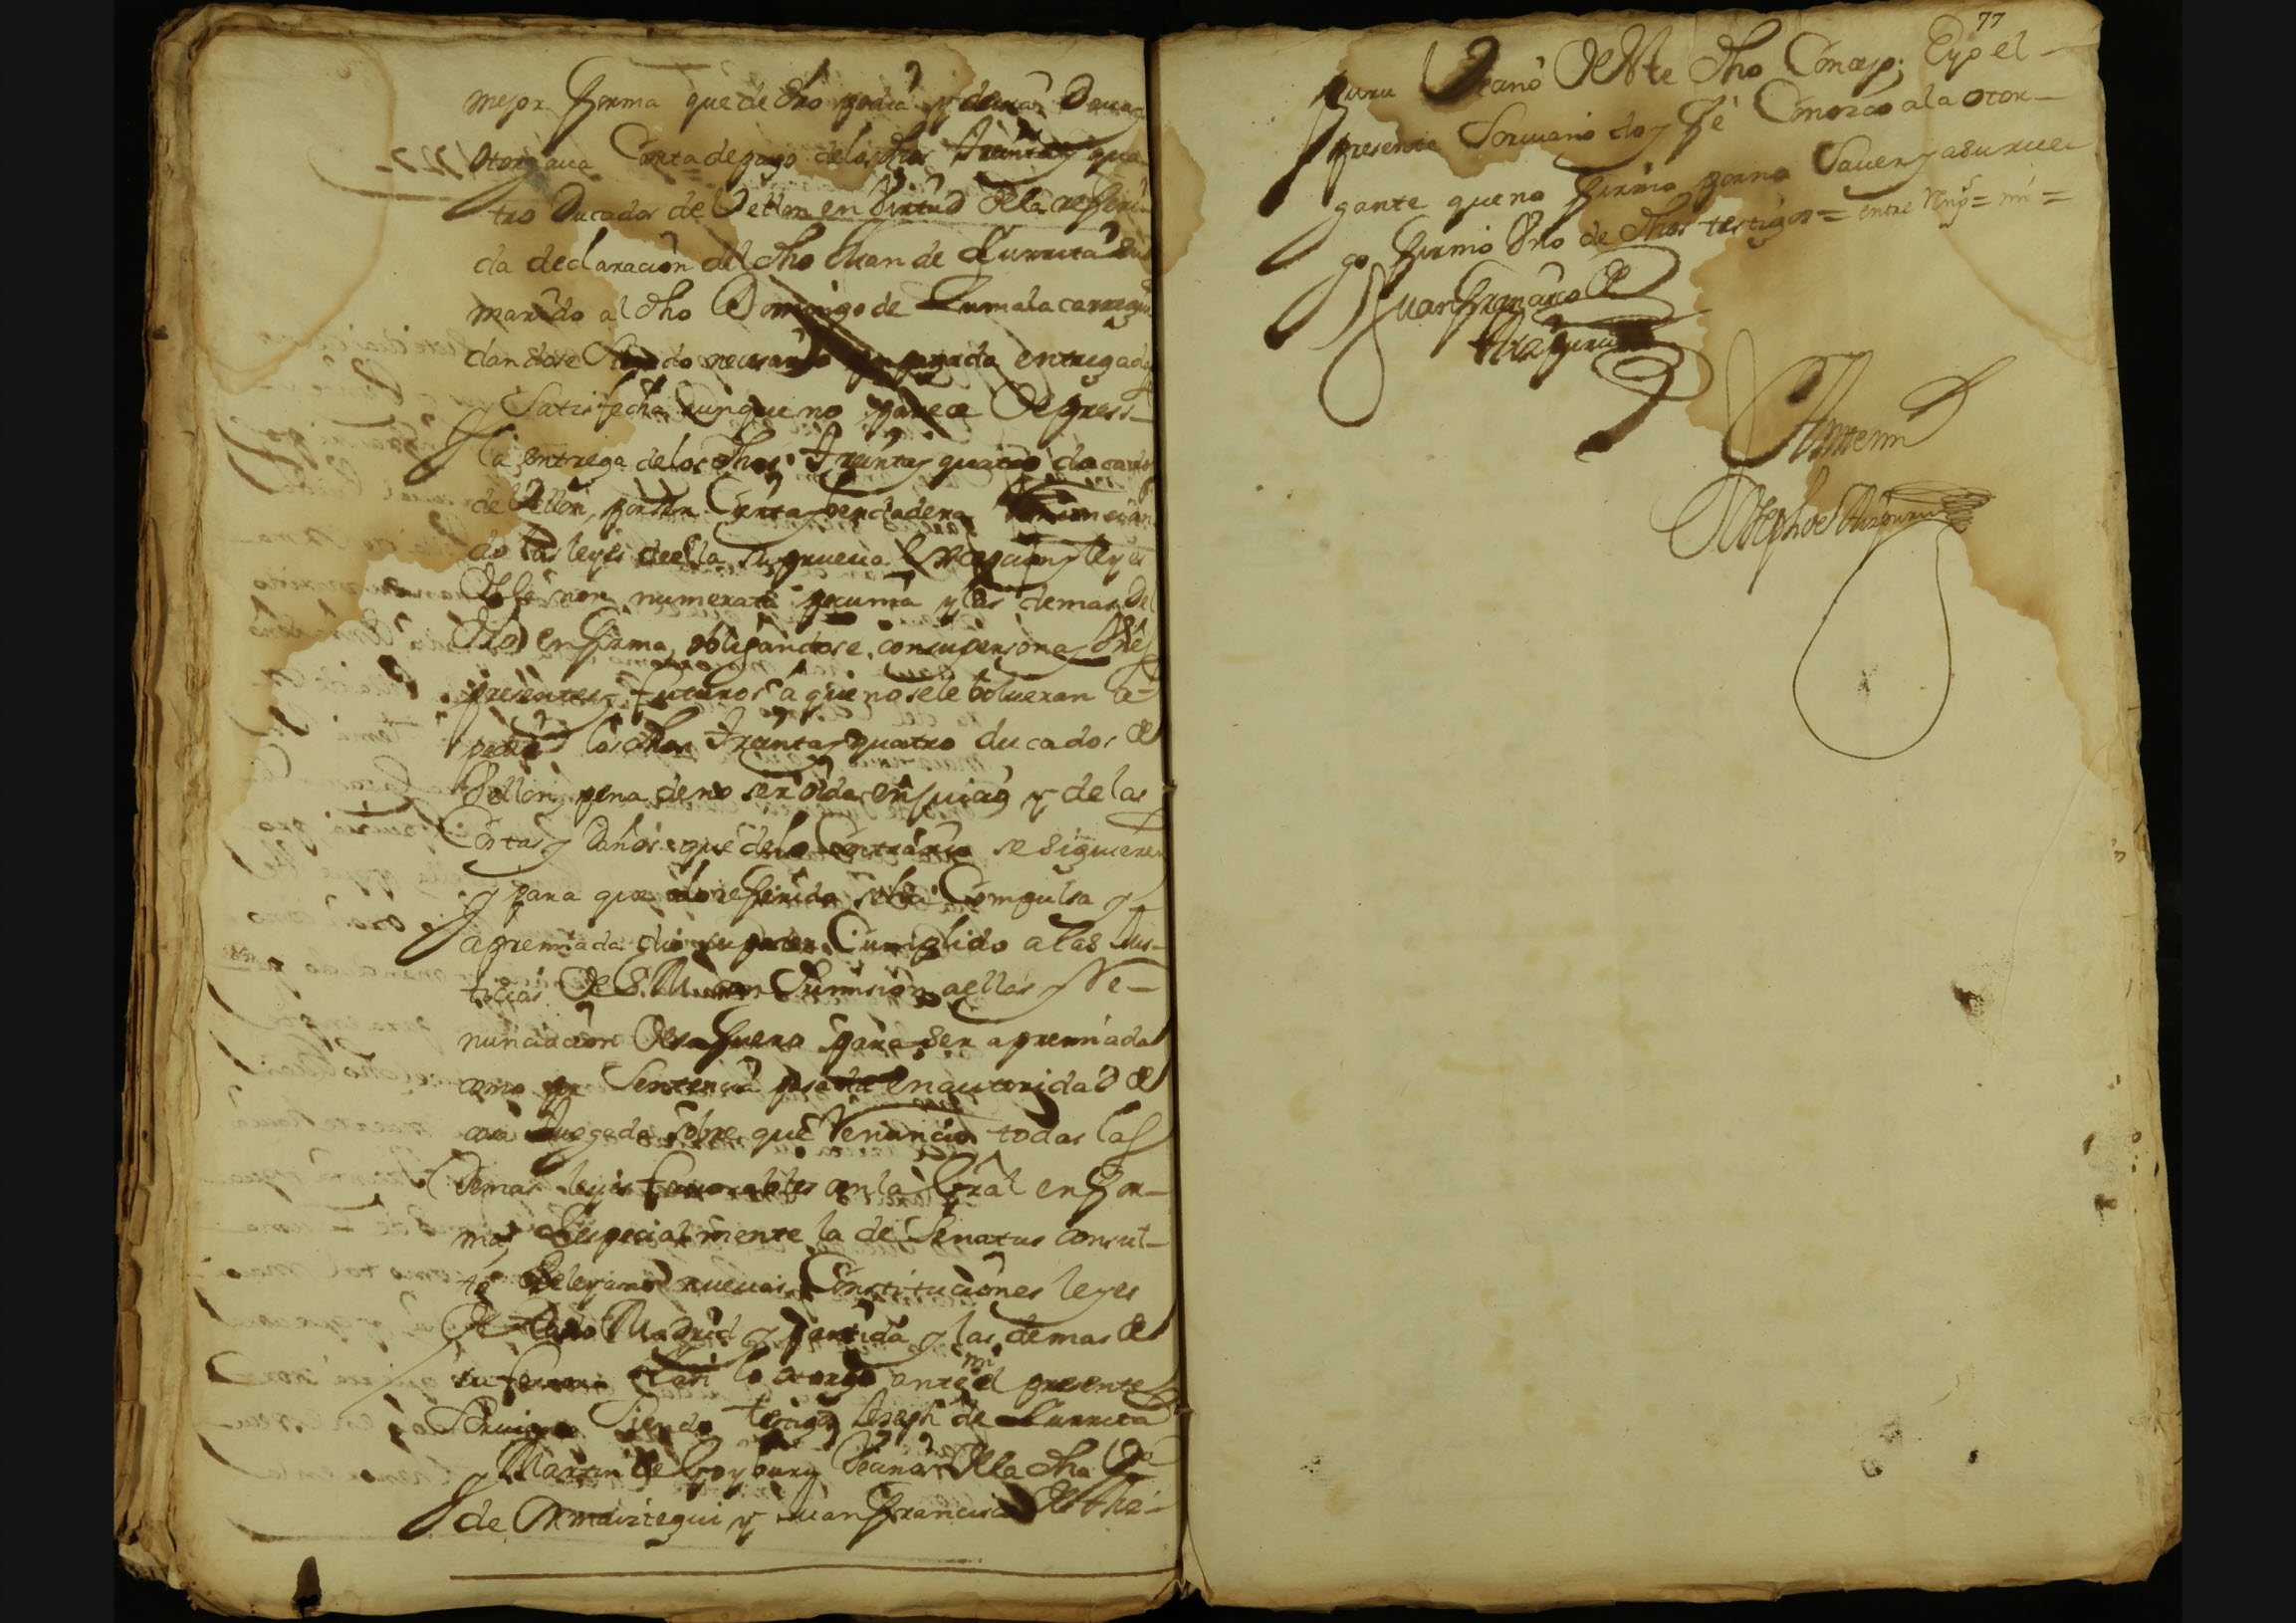 mejor forma que de dro podia y deuia Daua y
otorgaua Carta de pago de los dhos treinta y qua
tro Ducados de Vellon en virtud de la referi
da declaracion del dho Juan de Zurruta su
marido al dho Domingo de Zumalacarregui
dandose siendo necesario por pagada entregada
y Satisfecha aunque no parece de pressте
la entrega de los dhos treinta y quatro ducados
de Vellon, por ser Cierta y berdadera Renuncian
do las leyes de ella su prueua Excepcion y leyes
de la non numerata pecunia y las demas del
Dro en forma, obligandose con su persona y vnes
presentes y futuros a que no se le bolueran a
pedir los dhos treinta y quatro ducados de
Vellon pena de no ser oida en juicio y de las
Costas y daños que de lo Contrario se siguieren
y para que a lo referido sea Compulsa y
apremiada dio su poder Cumplido a las Jus-
ticias de S. M. con Sumision a ellas y Re-
nunciacion de su fuero para ser apremiada
como por Sentencia pasada en autoridad de
cosa Juzgada sobre que Renuncio todas las
demas leyes fauorables con la Gral en for-
ma, Especialmente la de Senatus consul-
to Beleyano nueuas Constituciones leyes
de Toro Madrid y Partida y las demas de
su fauor y asi lo otorgo ante mi el presente
Scriuano Siendo testigos Joseph de Zurruta
y Martin de Goyburu Vecinos de la dha Va
de Ormaiztegui y Juan Francisco de Aiz-
77
puru Vecino de este dho Concejo; E yo el
presente Scriuano doy fe Conozco a la otor-
gante que no firmo por no Sauer y a su rue-
go firmo Vno de dhos testigos = entre Rngs = mi =
Juan Francisco de
Aizpuru
Ante mi
Joseph de Aizpuru